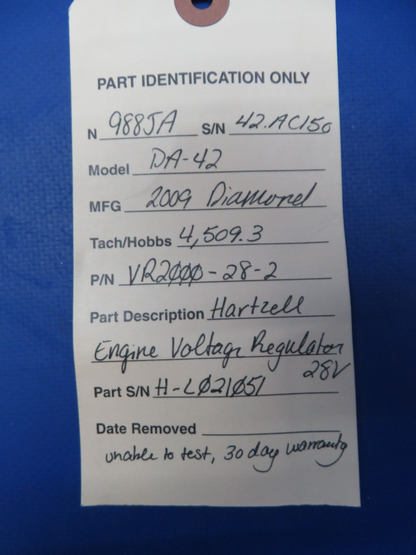 PART IDENTIFICATION ONLY
N 988JA S/N 42.AC150
Model DA-42
MFG 2009 Diamond
Tach/Hobbs 4,509.3
P/N VR2000-28-2
Part Description Hartzell
Engine Voltage Regulator
28V
Part S/N H-L021051
Date Removed
unable to test, 30 day warranty